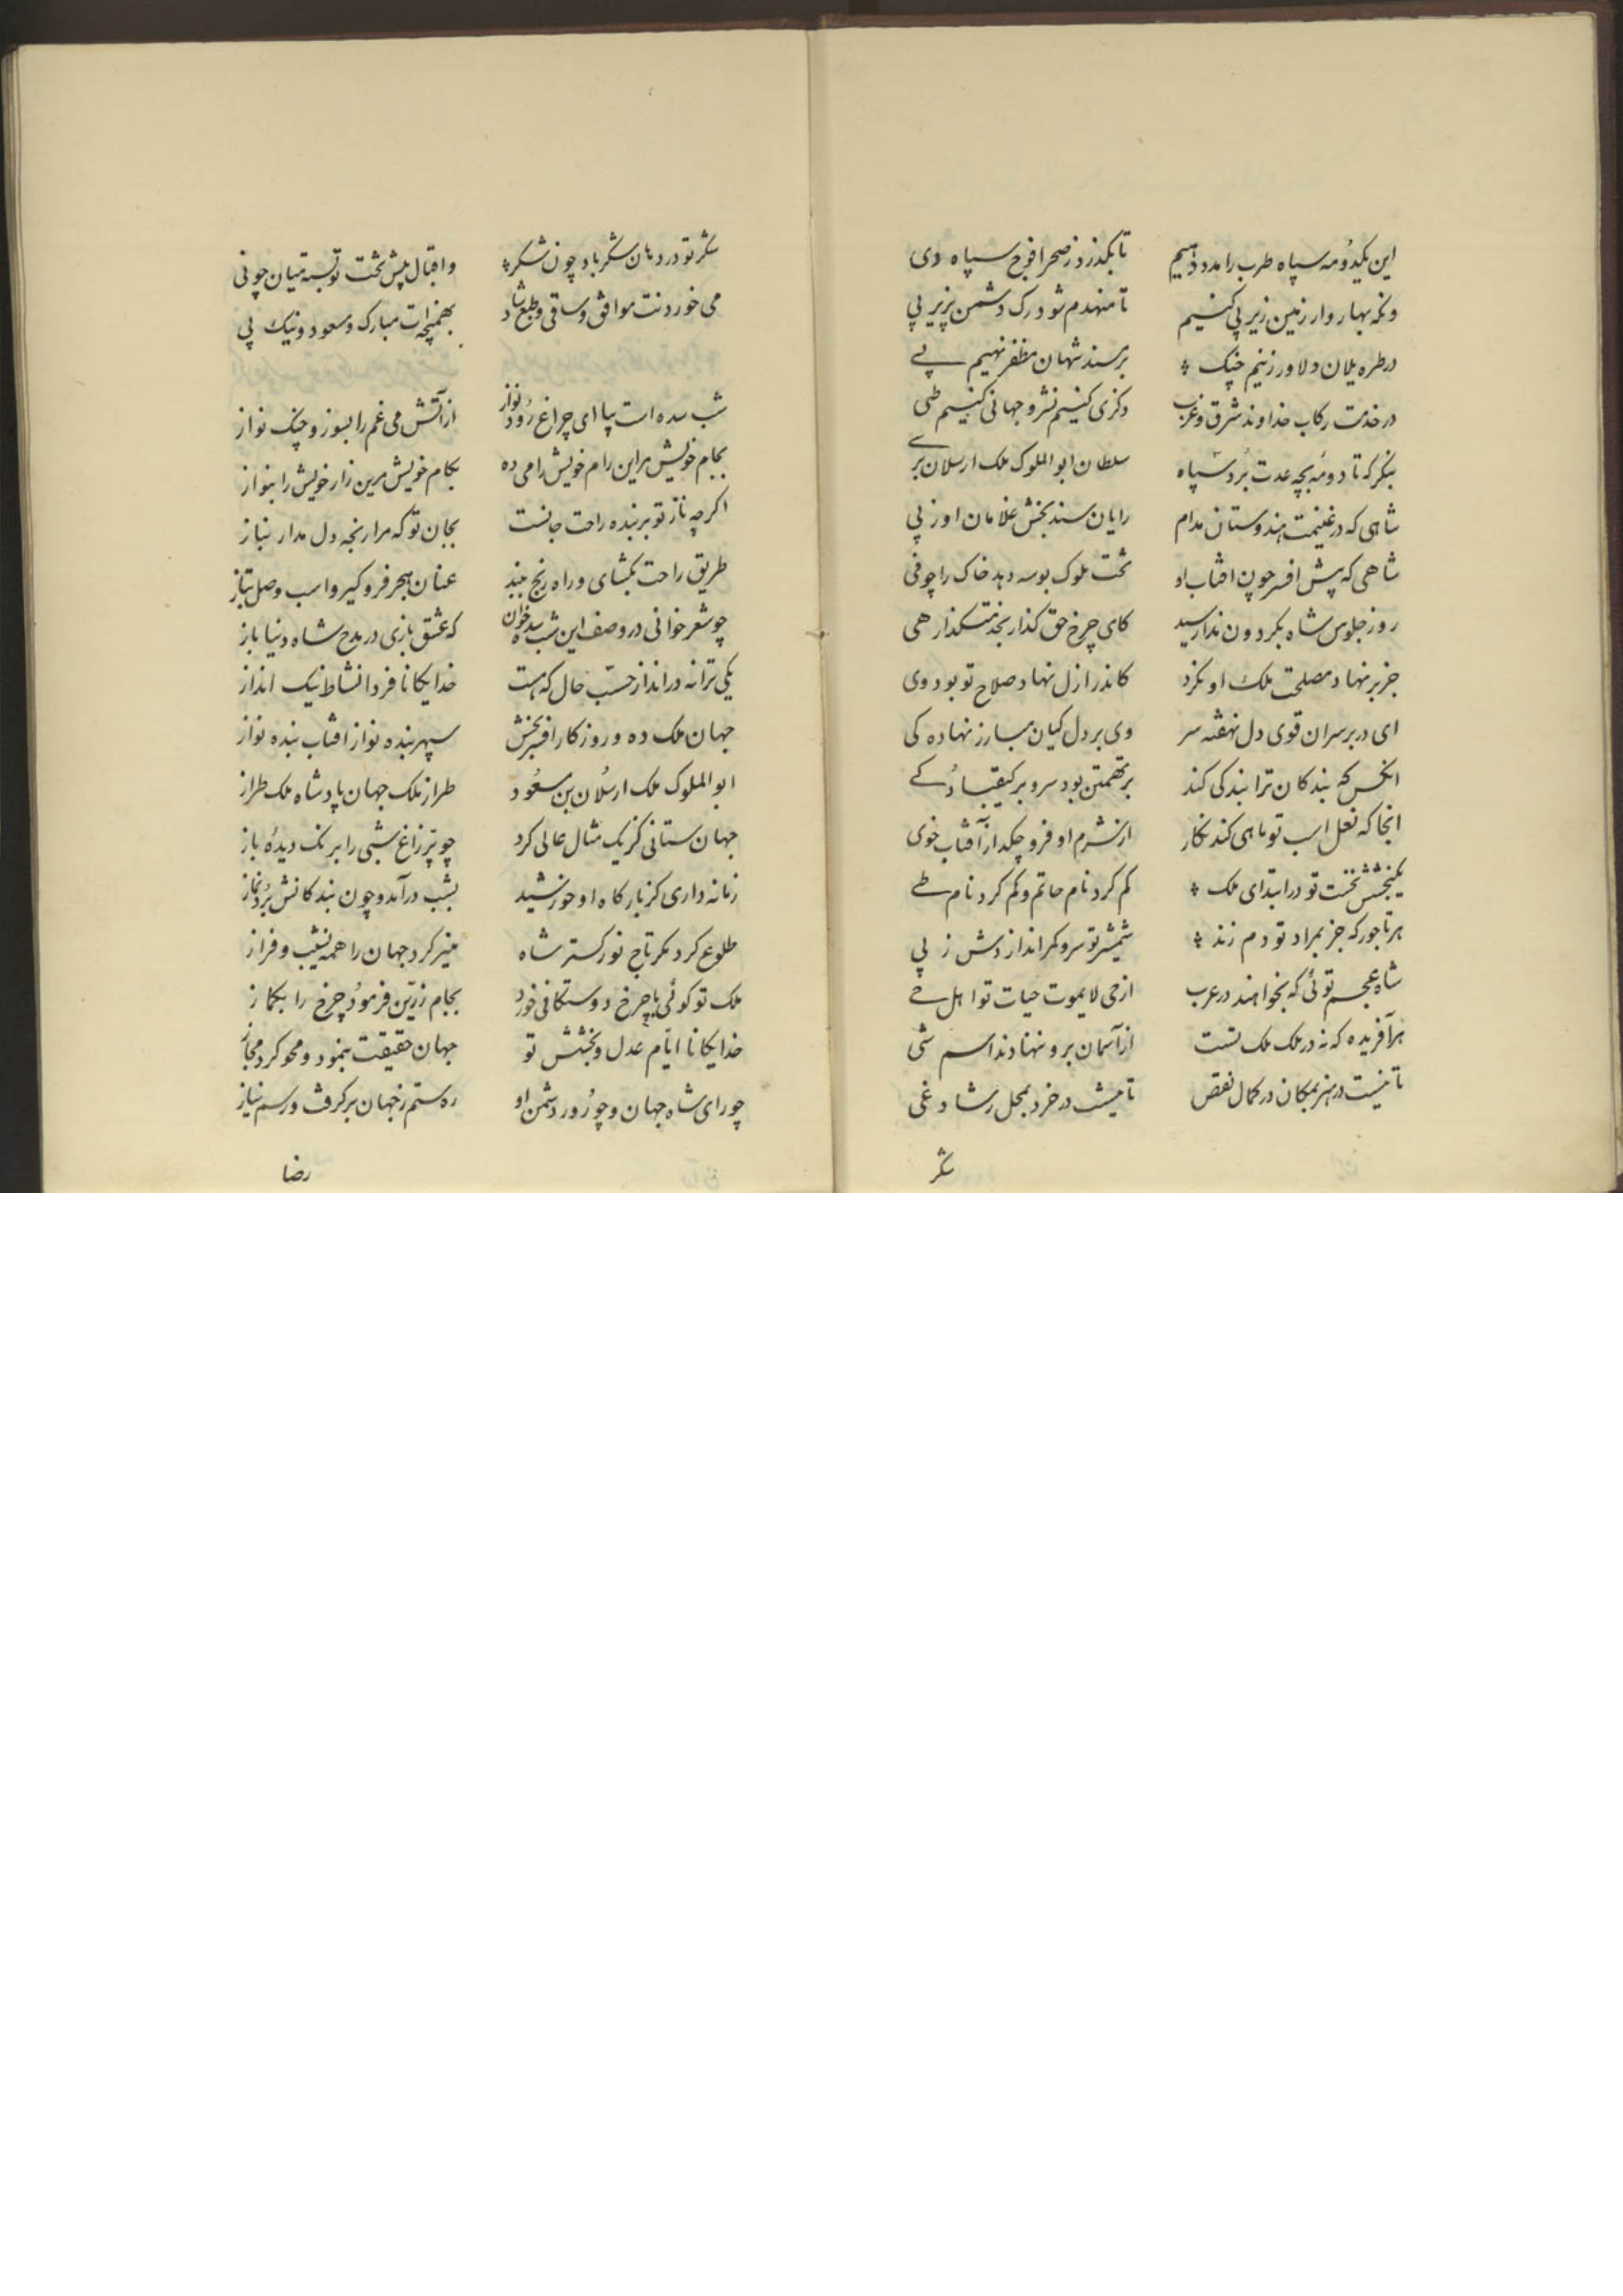 این یکدومه سپاه طرب را مدد دهیم تا بگذرد ز صحرا فوج سپاه دی
وانکه بهاروار زمین زیر پی کنیم تا منهدم شود رک دشمن بزیر پی
در طره یلان دلاور زنیم چنک بر مسند شهان مظفر نهیم پے
در خدمت رکاب خداوند شرق و غرب ذکری کنیم نشر و جهانی کنیم طی
بنکر که تا دومه بچه عدت برد سپاه سلطان ابوالملوک ملک ارسلان برے
شاهی که در غنیمت هندوستان مدام رایان سند بخش غلامان او ز پی
شاهی که پیش افسر چون افتاب او تخت ملوک بوسه دهد خاک را چو فی
روز جلوس شاه بکردون ندا رسید کای چرخ حق گذار بخدمت گذار هی
جز بر نهاد مصلحت ملک او نکرد کاندر ازل نهاد صلاح تو بود وی
ای در بر سران قوی دل نهفته سر وی بر دل کیان مبارز نهاده کی
انکس که بندکان ترا بندکی کند بر تهمتن بود سر و بر کیقباد کے
انجا که نعل اسب تو ماهی کند نکار از شرم او فرو چکد از آفتاب خوی
یک بخشش نخست تو در ابتدای ملک کم کرد نام حاتم و کم کرد نام طے
هر تاجور که جز بمراد تو دم زند شمشیر تو سر و کمر اندازدش ز پی
شاه عجم توئی که بخواهند در عرب از حی لایموت حیات تو اهل حے
هر آفریده که نه در ملک ملک تست از آسمان برو ننهادند اسم شی
تا نیست در هنر بمکان در کمال نقص تا نیست در خرد بمحل رشاد غی
شکر
شکر تو در دهان شکر باد چون شکر و اقبال پیش تخت تو بسته میان چو نی
می خوردنت موافق و ساقی و طبع شاد بهمنچه ات مبارک و مسعود و نیک پی
شب سده است بیا ای چراغ رود نواز از آتش می غم را بسوز و چنک نواز
بجام خویش مراین رام خویش را می ده بکام خویش مرین زار خویش را بنواز
اکرچه ناز تو بر بنده راحت جانست بجان تو که مرا رنجه دل مدار بناز
طریق راحت بکشای و راه رنج ببند عنان هجر فرو کیر و اسب وصل بتاز
چو شعر خوانی در وصف این شب سده خوان که عشق بازی در مدح شاه دنیا باز
یکی ترانه درانداز حسب حال که هست خدایکانا فردا نشاط نیک انداز
جهان ملک ده و روزکار افسر بخش سپهر بنده نواز افتاب بنده نواز
ابوالملوک ملک ارسلان بن مسعود طراز ملک جهان پادشاه ملک طراز
جهان ستانی کز یک مثال عالی کرد چو پر زاغ شبی را برنک دیده باز
زمانه داری کز بارکاه او خورشید بشب درآمد و چون بندکانش برد نماز
طلوع کرد مکر تاج نورکستر شاه منیر کرد جهان را همه نشیب و فراز
ملک تو کوئی با چرخ دوستکانی خورد بجام زرین فرمود چرخ را بکماز
خدایکانا ایام عدل و بخشش تو جهان حقیقت بنمود و محو کرد مجاز
چو رای شاه جهان و چو زور دشمن او ره ستم ز جهان برگرفت و رسم نیاز
رضا